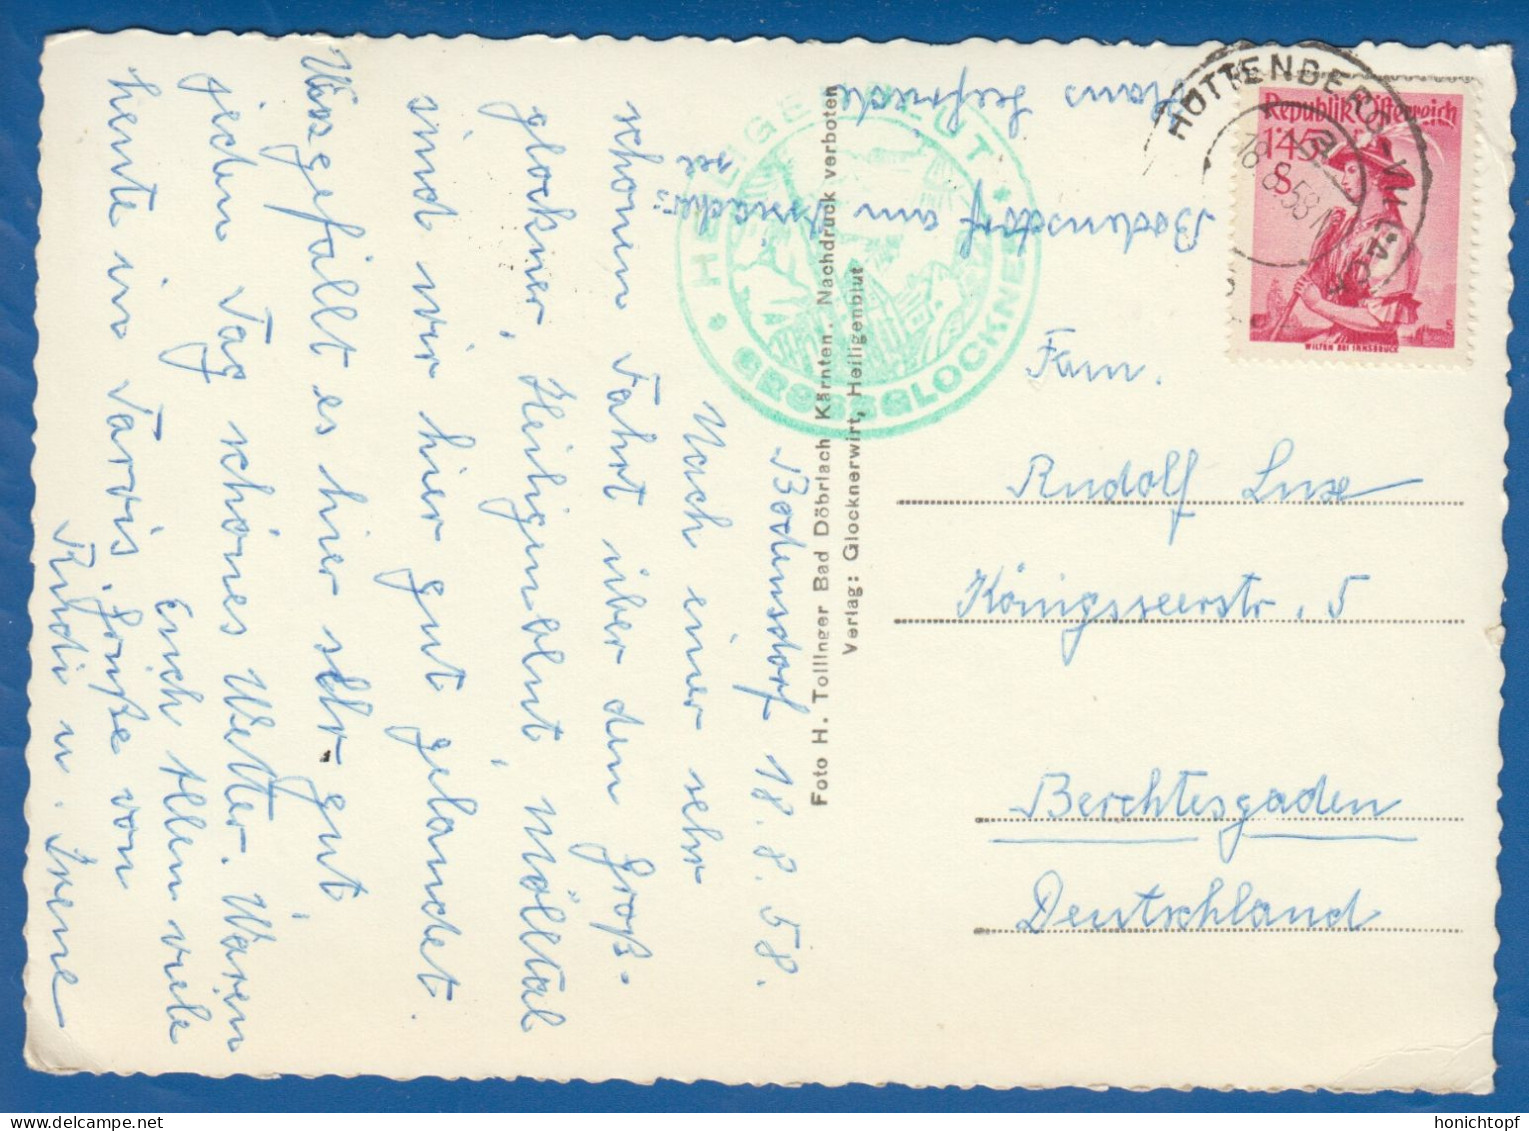 Bodensdorf 18.8.58.
Nach einer sehr
schönen Fahrt über den Groß-
glockner, Heiligenblut Mölltal
sind wir hier gut gelandet.
Uns gefällt es hier sehr gut
jeden Tag schönes Wetter. Waren
heute in Tarvis. Grüße von
Euch Allen viele
Rudi u. Irene
Haus
Bodensdorf am
see
HEILIGENBLUT
GROSSGLOCKNER
Foto H. Tollinger Bad Döbriach Kärnten. Nachdruck verboten
Verlag: Glocknerwirt, Heiligenblut
HÜTTENBERG
18.8.58
Republik Österreich
1'45
S
WILTEN BEI INNSBRUCK
Fam.
Rudolf Luxe
Königsseerstr. 5
Berchtesgaden
Deutschland
honichtopf